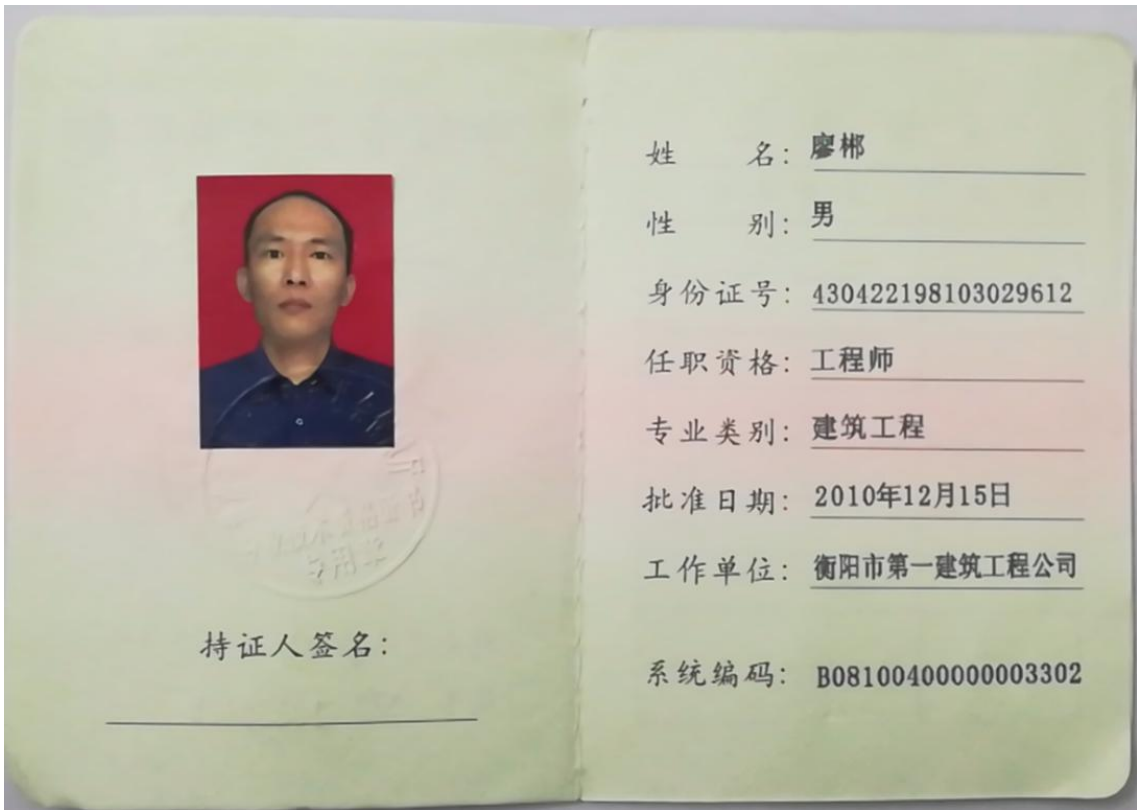 持证人签名：
姓名：廖郴
性别：男
身份证号：430422198103029612
任职资格：工程师
专业类别：建筑工程
批准日期：2010年12月15日
工作单位：衡阳市第一建筑工程公司
系统编码：B08100400000003302